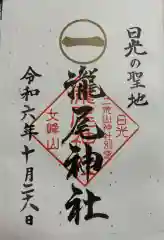 日光の聖地
瀧尾神社
令和六年十月二六日
二荒山神社別宮
日光
女峰山